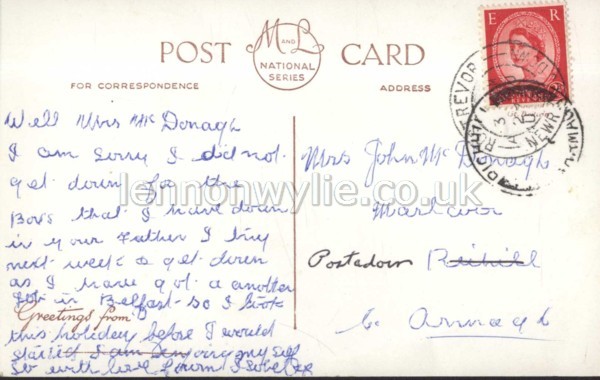 POST CARD
M AND L
NATIONAL
SERIES
FOR CORRESPONDENCE
ADDRESS
E R
TREVOR
NEWR
Well Mrs Mc Donagh
I am sorry I did not
get down for the
Boys that I have down
in your Father I
next week a get down
as I have got a another
Job in Belfast so I took
Greetings from
this holiday before I would
started I am my self
So with love from
Mrs John Mc Donagh
Portadown
Co Armagh
lennonwylie.co.uk